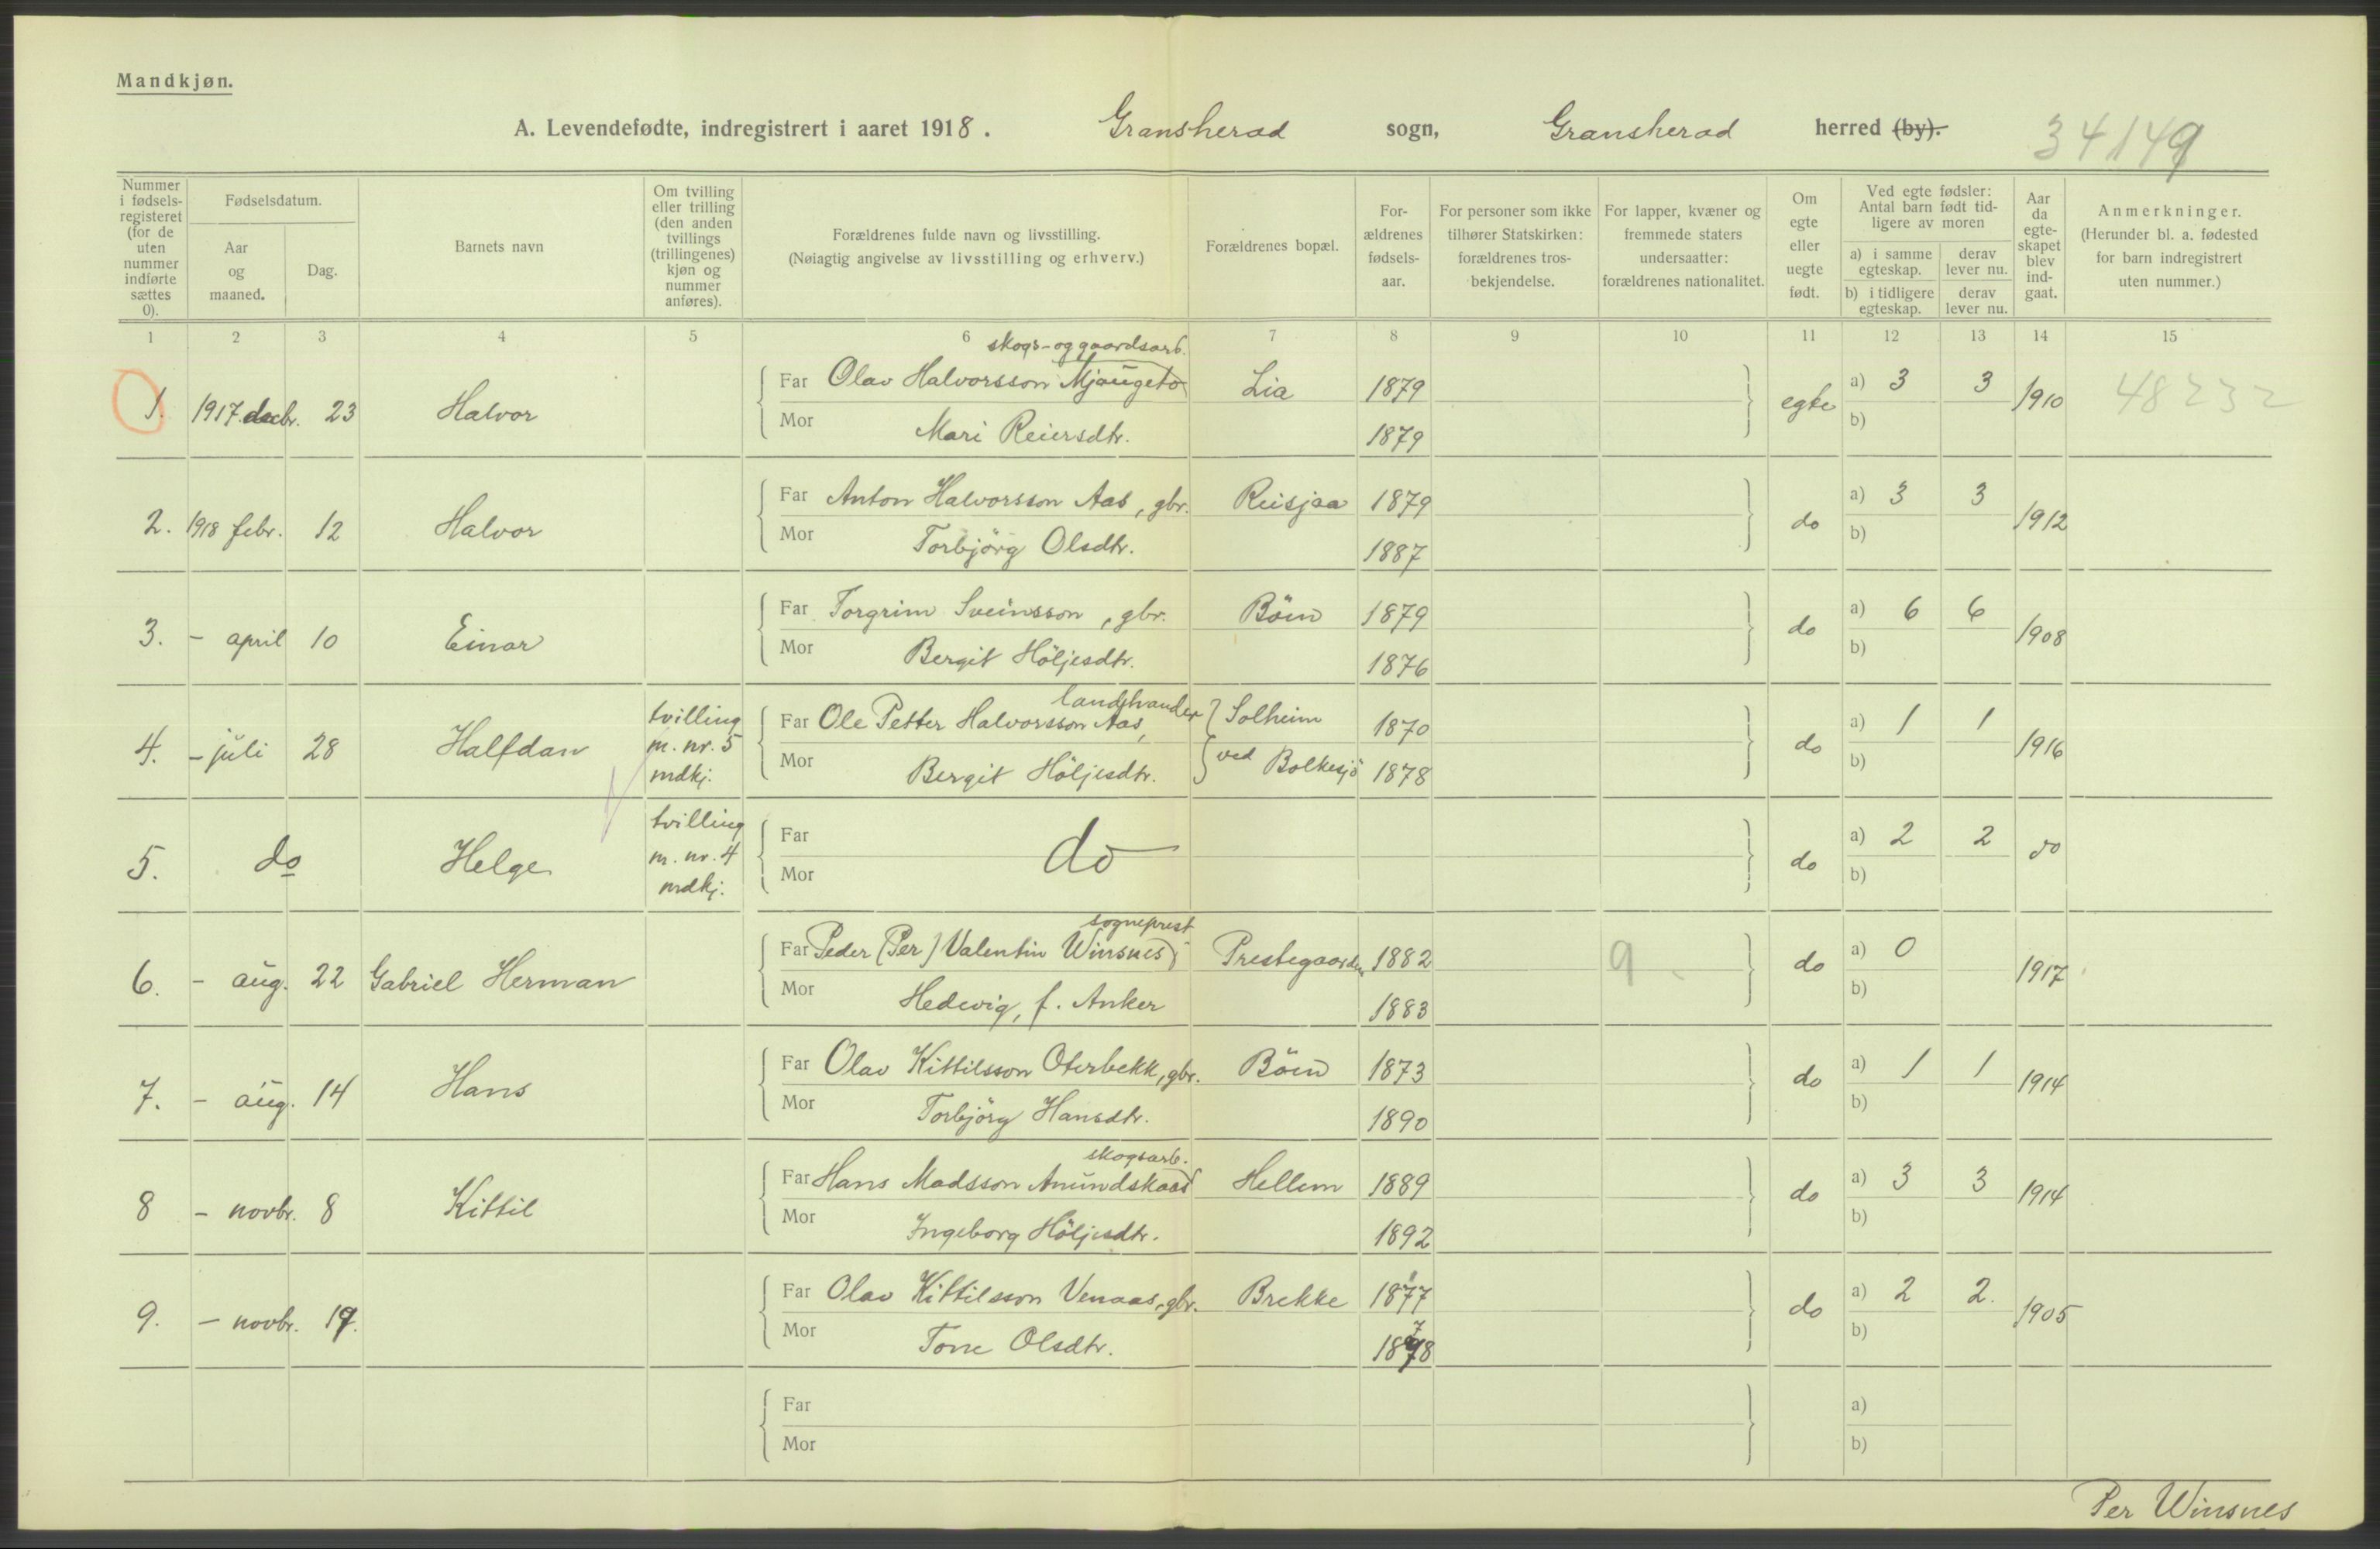 Mandkjøn.
A. Levendefødte, indregistrert i aaret 1918. Gransherad sogn, Gransherad herred (by). 34149
Nummer i fødselsregisteret (for de uten nummer indførte sættes 0).
Fødselsdatum.
Aar og maaned.
Dag.
Barnets navn
Om tvilling eller trilling (den anden tvillings (trillingenes) kjøn og nummer anføres).
Forældrenes fulde navn og livsstilling.
(Nøiagtig angivelse av livsstilling og erhverv.)
Forældrenes bopæl.
Forældrenes fødselsaar.
For personer som ikke tilhører Statskirken: forældrenes trosbekjendelse.
For lapper, kvæner og fremmede staters undersaatter: forældrenes nationalitet.
Om egte eller uegte født.
Ved egte fødsler: Antal barn født tidligere av moren
a) i samme egteskap. derav lever nu.
b) i tidligere egteskap. derav lever nu.
Aar da egteskapet blev indgaat.
Anmerkninger.
(Herunder bl. a. fødested for barn indregistrert uten nummer.)
1 2 3 4 5 6 7 8 9 10 11 12 13 14 15
skogs- og gaardsarb.
1. 1917 decbr. 23 Halvor Far Olav Halvorsson Mjaugeto Lia 1879 egte a) 3 3 1910 48232
Mor Mari Reiersdtr. 1879 b)
2. 1918 febr. 12 Halvor Far Anton Halvorsson Aas, gbr. Reisjaa 1879 do a) 3 3 1912
Mor Torbjörg Olsdtr. 1887 b)
3. - april 10 Einar Far Torgrim Sveinsson, gbr. Böen 1879 do a) 6 6 1908
Mor Bergit Höljesdtr. 1876 b)
landhandler
4. - juli 28 Halfdan tvilling m. nr. 5 mdkj. Far Ole Petter Halvorsson Aas, Solheim 1870 do a) 1 1 1916
Mor Bergit Höljesdtr. ved Bolkesjö 1878 b)
5. do Helge tvilling m. nr. 4 mdkj. Far do do a) 2 2 do
Mor b)
sogneprest
6. - aug. 22 Gabriel Herman Far Peder (Per) Valentin Winsnes Prestegaarden 1882 9 do a) 0 1917
Mor Hedevig, f. Anker 1883 b)
7. - aug. 14 Hans Far Olav Kittilsson Oterbekk, gbr. Böen 1873 do a) 1 1 1914
Mor Torbjörg Hansdtr. 1890 b)
skogsarb.
8 - novbr. 8 Kittil Far Hans Madsson Anundskaas Hellem 1889 do a) 3 3 1914
Mor Ingeborg Höljesdtr. 1892 b)
9. - novbr. 19. Far Olav Kittilsson Venaas, gbr. Brekke 1877 do a) 2 2. 1905
Mor Tone Olsdtr. 1878 b)
Far a)
Mor b)
Per Winsnes